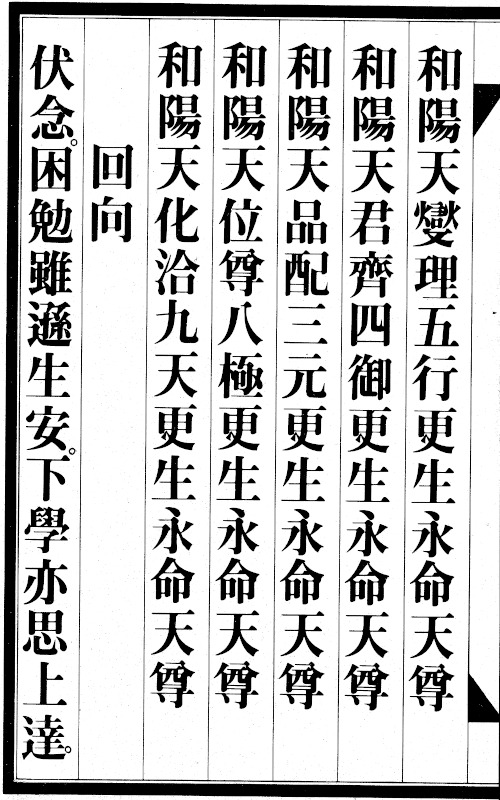 和陽天燮理五行更生永命天尊
和陽天君齊四御更生永命天尊
和陽天品配三元更生永命天尊
和陽天位尊八極更生永命天尊
和陽天化洽九天更生永命天尊
回向
伏念。困勉雖遜生安。下學亦思上達。